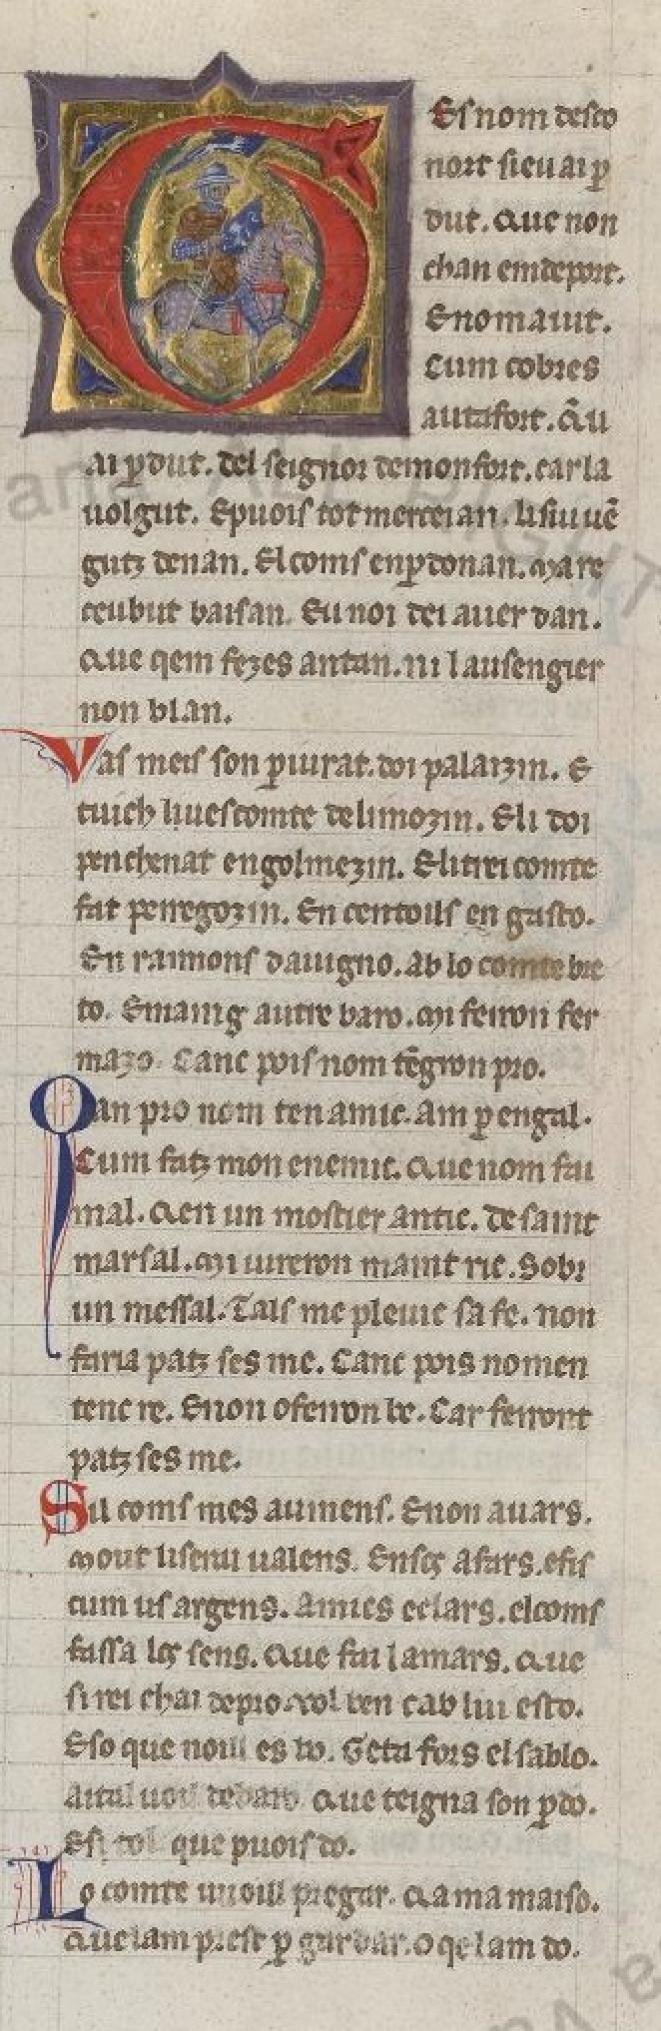 GEs nom desco
nort sieu ai ꝑ
dut. Que non
chan em deport.
E nom aiut.
Cum cobres
autafort. q̃u
ai ꝑdut. del seignor de monfort. car la
uolgut. Epuois tot merceian. li sui uẽ
gutz denan. El coms en ꝑdonan. Ma re
ceubut baisan. Eu noi dei auer dan.
Que qem fezes antan. ni lausengier
non blan.
Vas meis son ꝑiurat. doi palaizin. E
tuich li uescomte de limozin. E li doi
penchenat engolmezin. E li trei comte
fat peiregozin. En centoils en gasto.
En raimons dauigno. ab lo comte bre
to. E maing autre baro. Mi feiron fer
mazo. Canc pois nom tẽgron pro.
Qan pro nom ten amic. Am ꝑ engal.
Cum fatz mon enemic. Que nom fai
mal. Qen un mostier antic. De saint
marsal. Mi iureron maint ric. Sobr
un messal. Tals me pleuic sa fe. non
faria patz ses me. Canc pois nomen
tenc re. E non o feiron be. Car feiront
patz ses me.
Sil coms mes auinens. E non auars.
Mout li serai ualens. En sos afars. e fis
cum us argens. Amics e clars. el coms
fassa los sens. Que fai la mars. que
si rei chai de pro. uol ben cab lui esto.
E so que noill es bo. Geta fors el sablo.
Aital uoil de baro que teigna son ꝑdo.
E si tol que puois do.
Lo comte uuoill pregar. Qa ma maiso.
Que lam prest ꝑ gardar. o qe lam do.